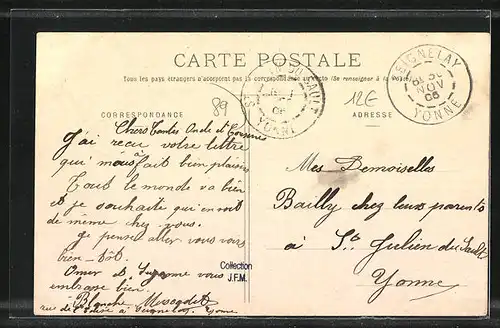 CARTE POSTALE
Tous les pays étrangers n'acceptent pas la correspondance au recto (Se renseigner à la Poste)
CORRESPONDANCE
ADRESSE
89
12E
SEIGNELAY
NOV
06
YONNE
YONNE
Chères Tantes Oncle et
J'ai reçu votre lettre
qui m'a fait bien plaisir
Tout le monde va bien
et je souhaite qu'il en soit
de même chez vous.
je pense aller vous voir
bien-tôt.
Omer et Suzanne vous
embrasse bien.
Blanche
rue de l'Eglise à Seignelay Yonne
Mes Demoiselles
Bailly chez leurs parents
à St Julien du Sault
Yonne
Collection
J.F.M.